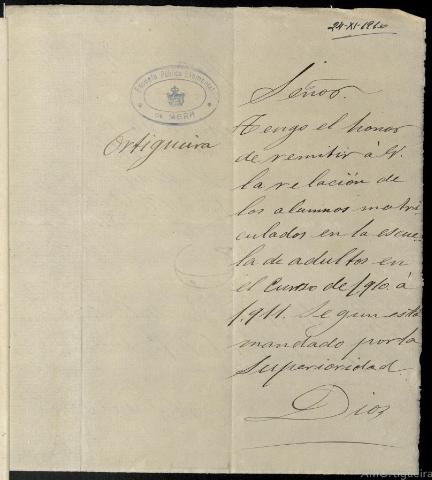 24-XI-1910
Escuela Pública Elemental
DE MERA
Ortigueira
Señor.
Tengo el honor
de remitir á V.
la relación de
los alumnos matri
culados en la escue
la de adultos en
el Curso de 1910 á
1911. Segun está
mandado por la
Superioridad.
Dios
AMOrtigueira